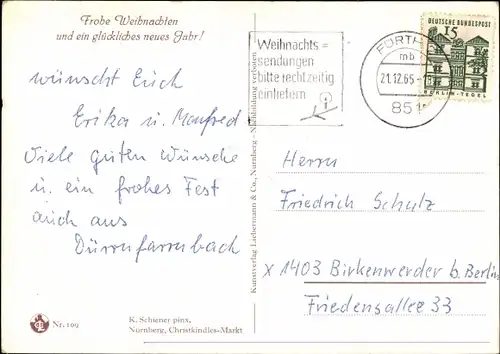 Frohe Weihnachten
und ein glückliches neues Jahr!
wünscht Euch
Erika u. Manfred
Viele guten Wünsche
u. ein frohes Fest
auch aus
Dürrnfarrnbach
Nr. 109
K. Schiener pinx.
Nürnberg, Christkindles-Markt
Kunstverlag Liebermann & Co., Nürnberg - Nachbildung verboten
Weihnachts=
sendungen
bitte rechtzeitig
einliefern
FÜRTH
mb
21.12.65
851
DEUTSCHE BUNDESPOST
15
BERLIN-TEGEL
Herrn
Friedrich Schulz
x 1403 Birkenwerder b. Berlin
Friedensallee 33